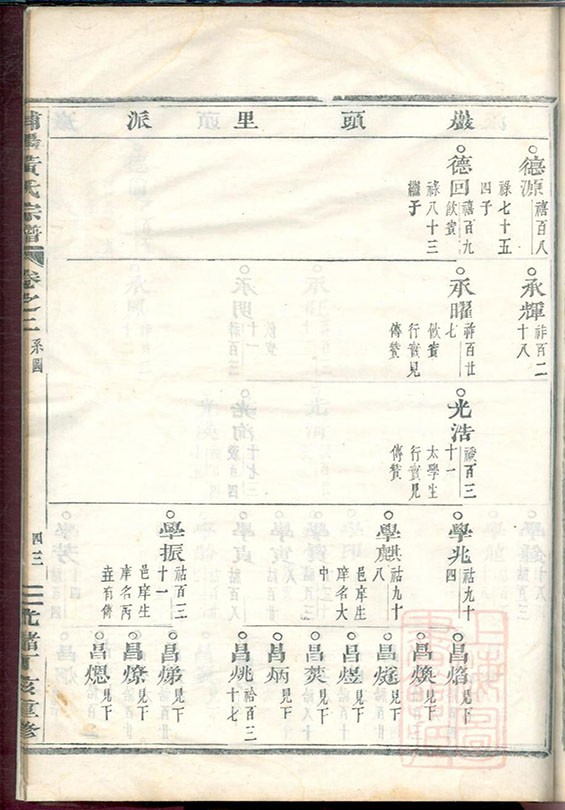 巖頭里派
德源
禧百八
祿七十五
四子
德回
禧百九
飲賓
祿八十三
繼于
承輝
祚百二
十八
承曜
祚百廿
七
飲賓
行實見
傳贊
光浩
十一
太學生
行實見
傳贊
學兆
祜九十
四
學
祜九十
八
邑庠生
庠名大
中
學振
祜百三
十一
邑庠生
庠名丙
並有傳
昌焰
見下
昌煥
見下
昌
見下
昌煜
見下
昌
見下
昌炳
見下
昌
祫百三
十七
昌
見下
昌燎
見下
昌
見下
黃氏宗譜
卷之二
系圖
四三
丁亥重修